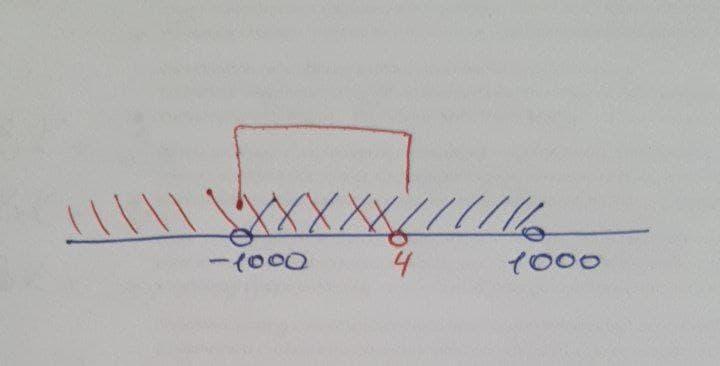 -1000 4 1000